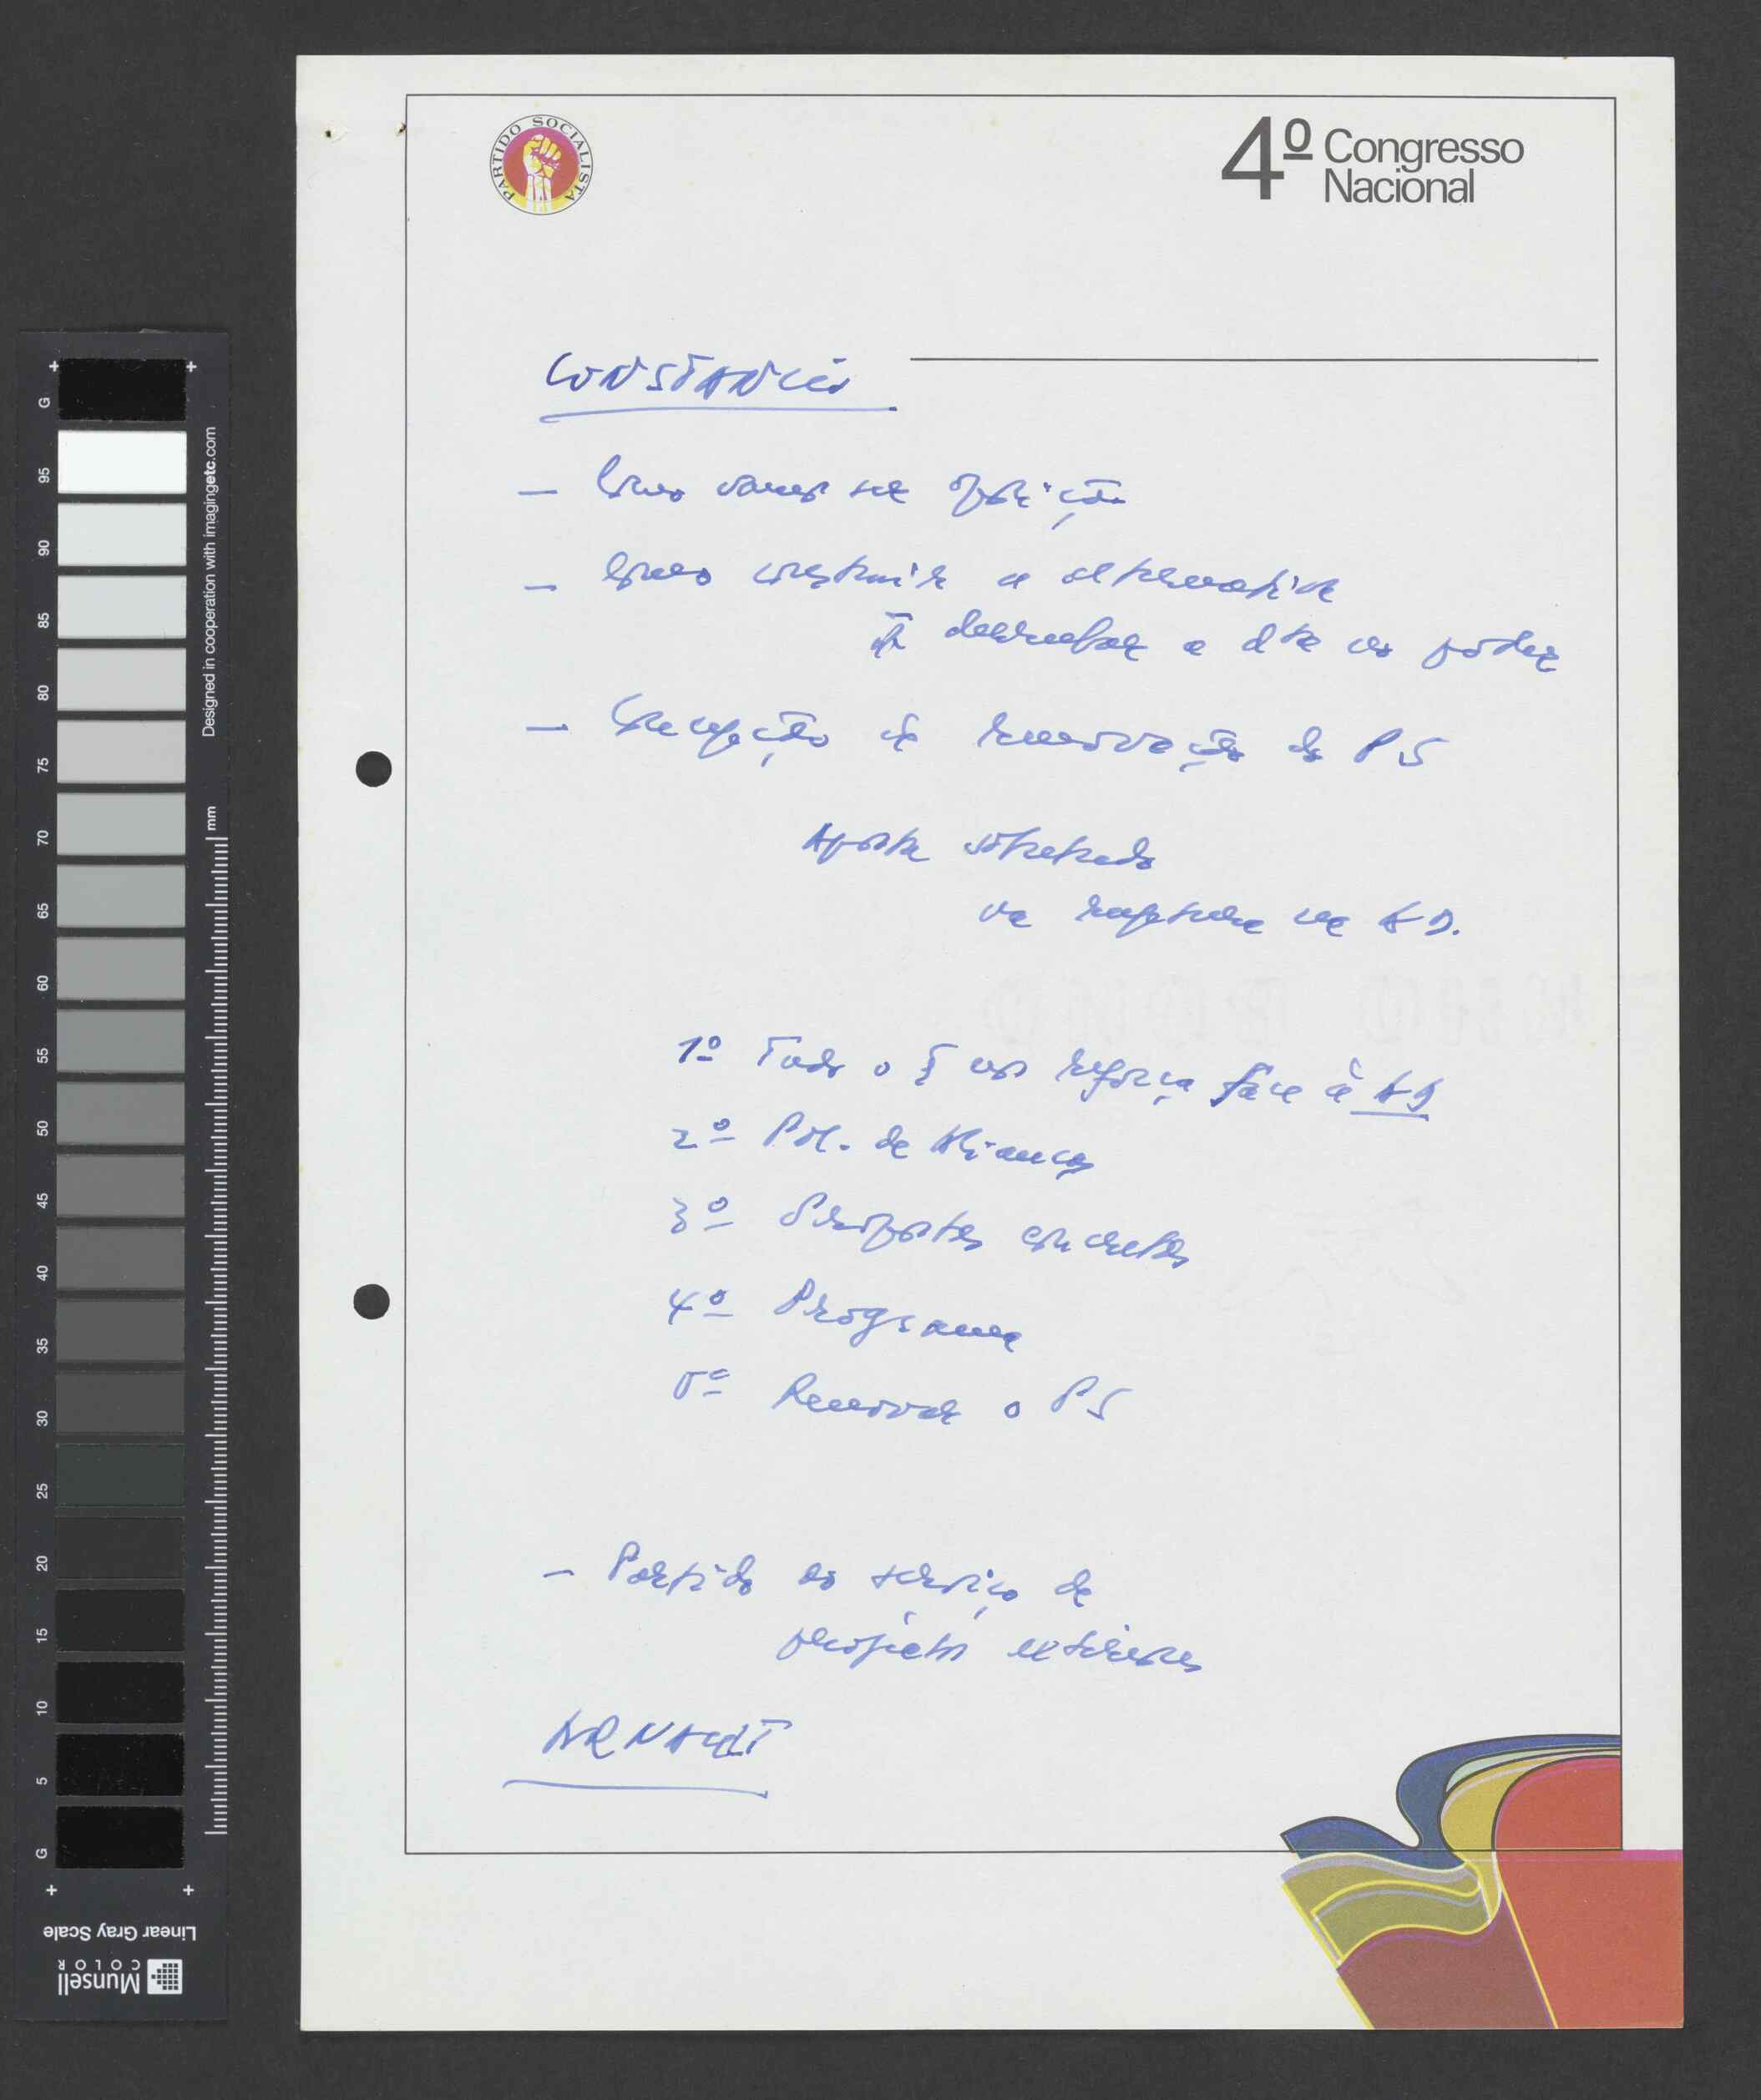 PARTIDO SOCIALISTA
4º Congresso
Nacional
CONSTANCIO
— Como vamos ser oposição
— Como construir a alternativa
derrubar a dta do poder
— Concepção de renovação do PS
Aposta sobretudo
na ruptura da AD.
1º Tudo o q nos reforça face à AD
2º Pol. de Alianças
3º Propostas concretas
4º Programa
5º Renovar o PS
— Partido ao serviço de
projectos exteriores
ARNAUT
Designed in cooperation with imagingetc.com
mm
G 95 90 85 80 75 70 65 60 55 50 45 40 35 30 25 20 15 10 5 G
Linear Gray Scale
Munsell
COLOR